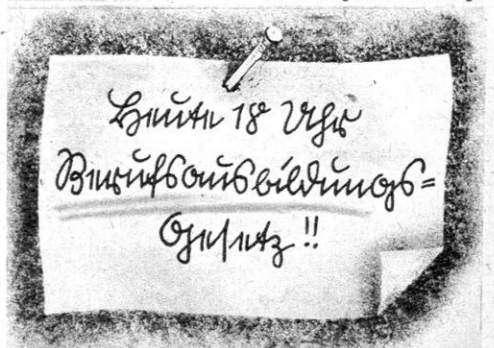 Heute 18 Uhr
Berufsausbildungs=
Gesetz !!